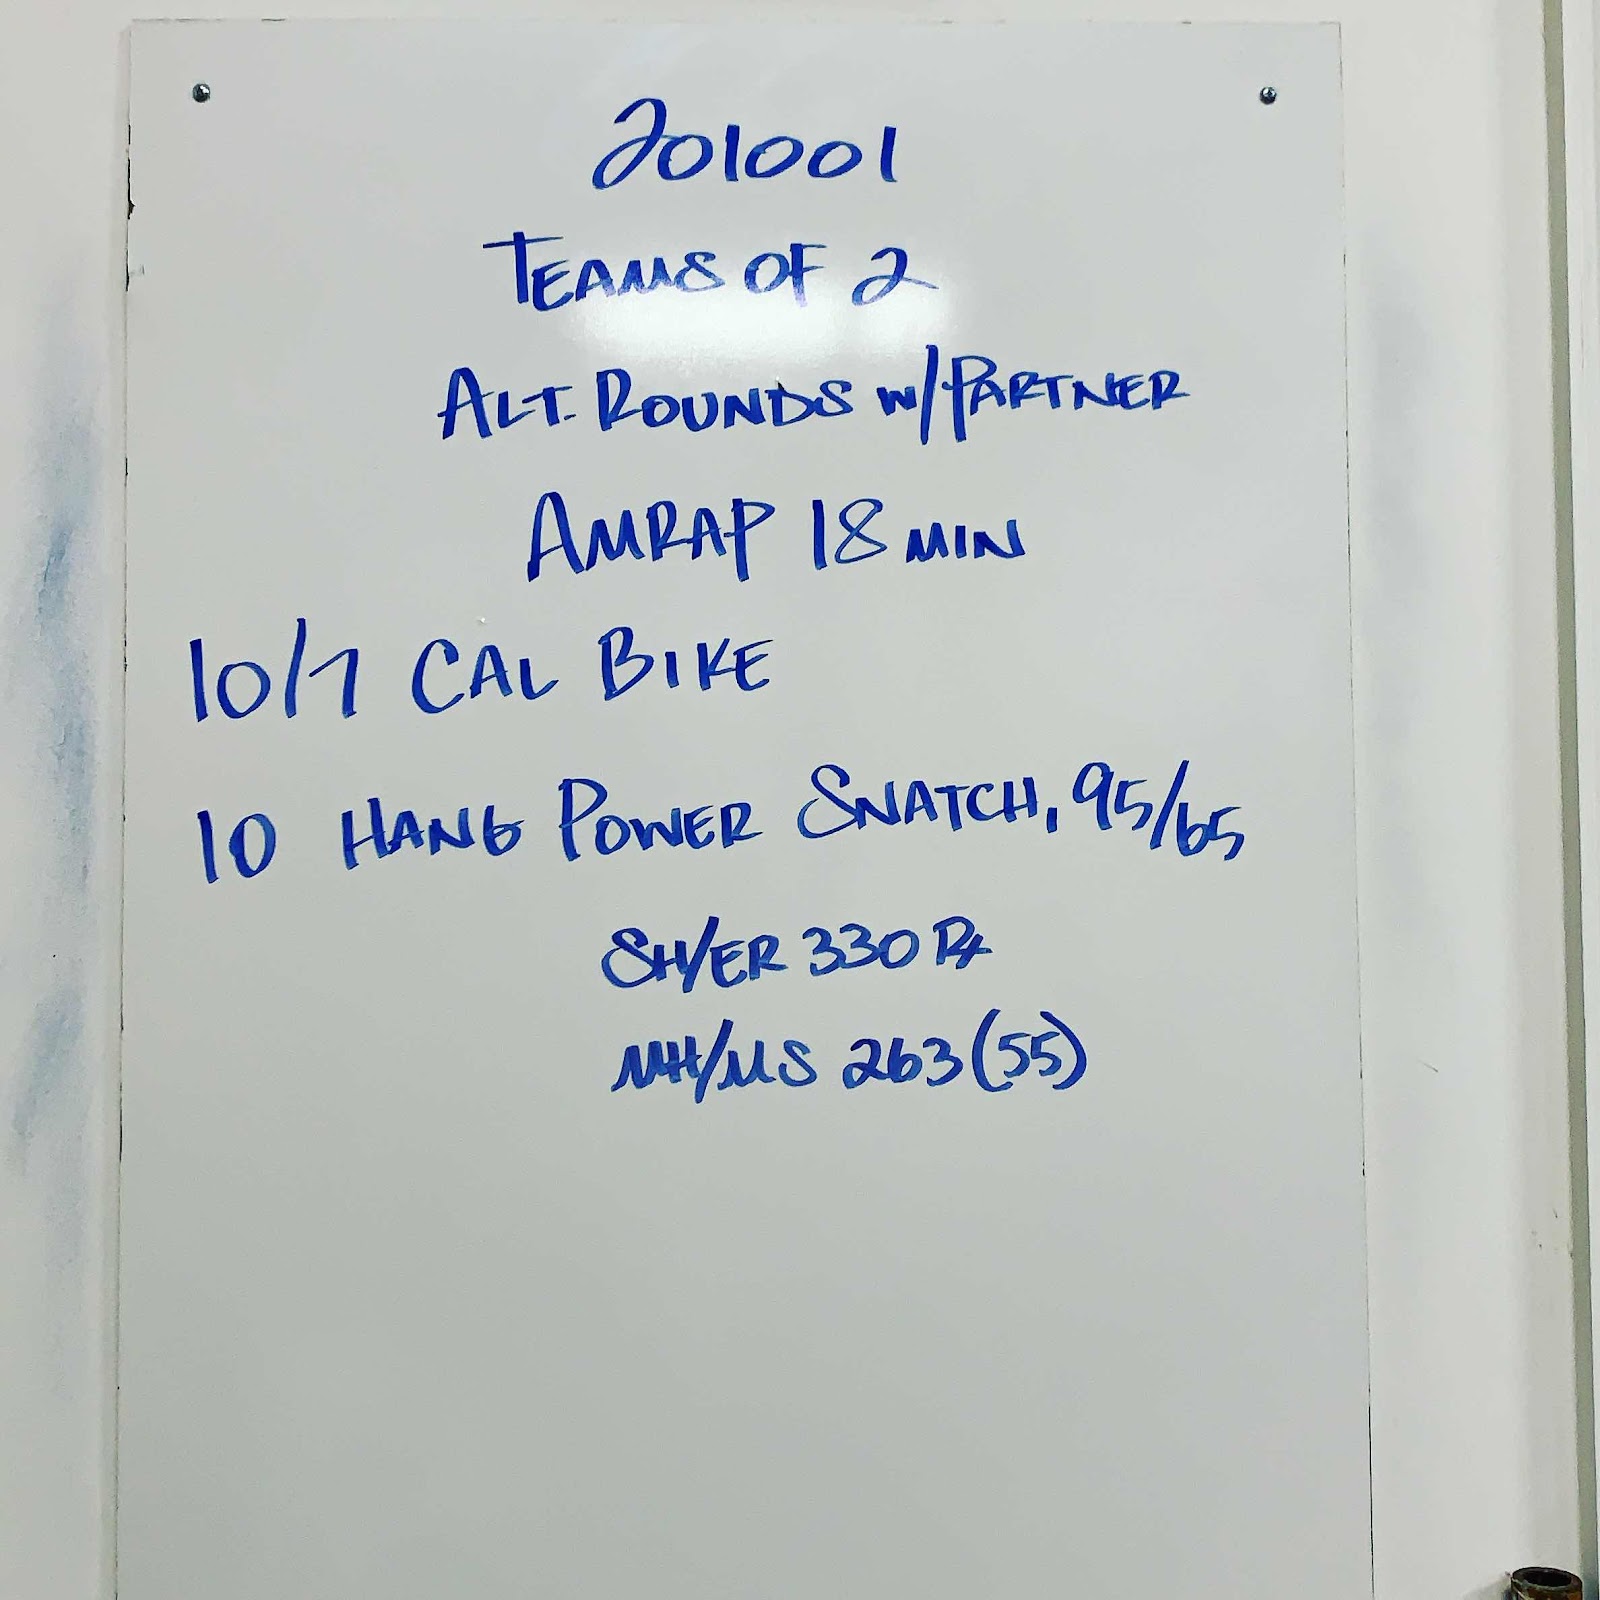 201001
TEAMS OF 2
ALT. ROUNDS W/PARTNER
AMRAP 18 MIN
10/7 CAL BIKE
10 HANG POWER SNATCH, 95/65
SH/ER 330 Rx
MH/MS 263 (55)